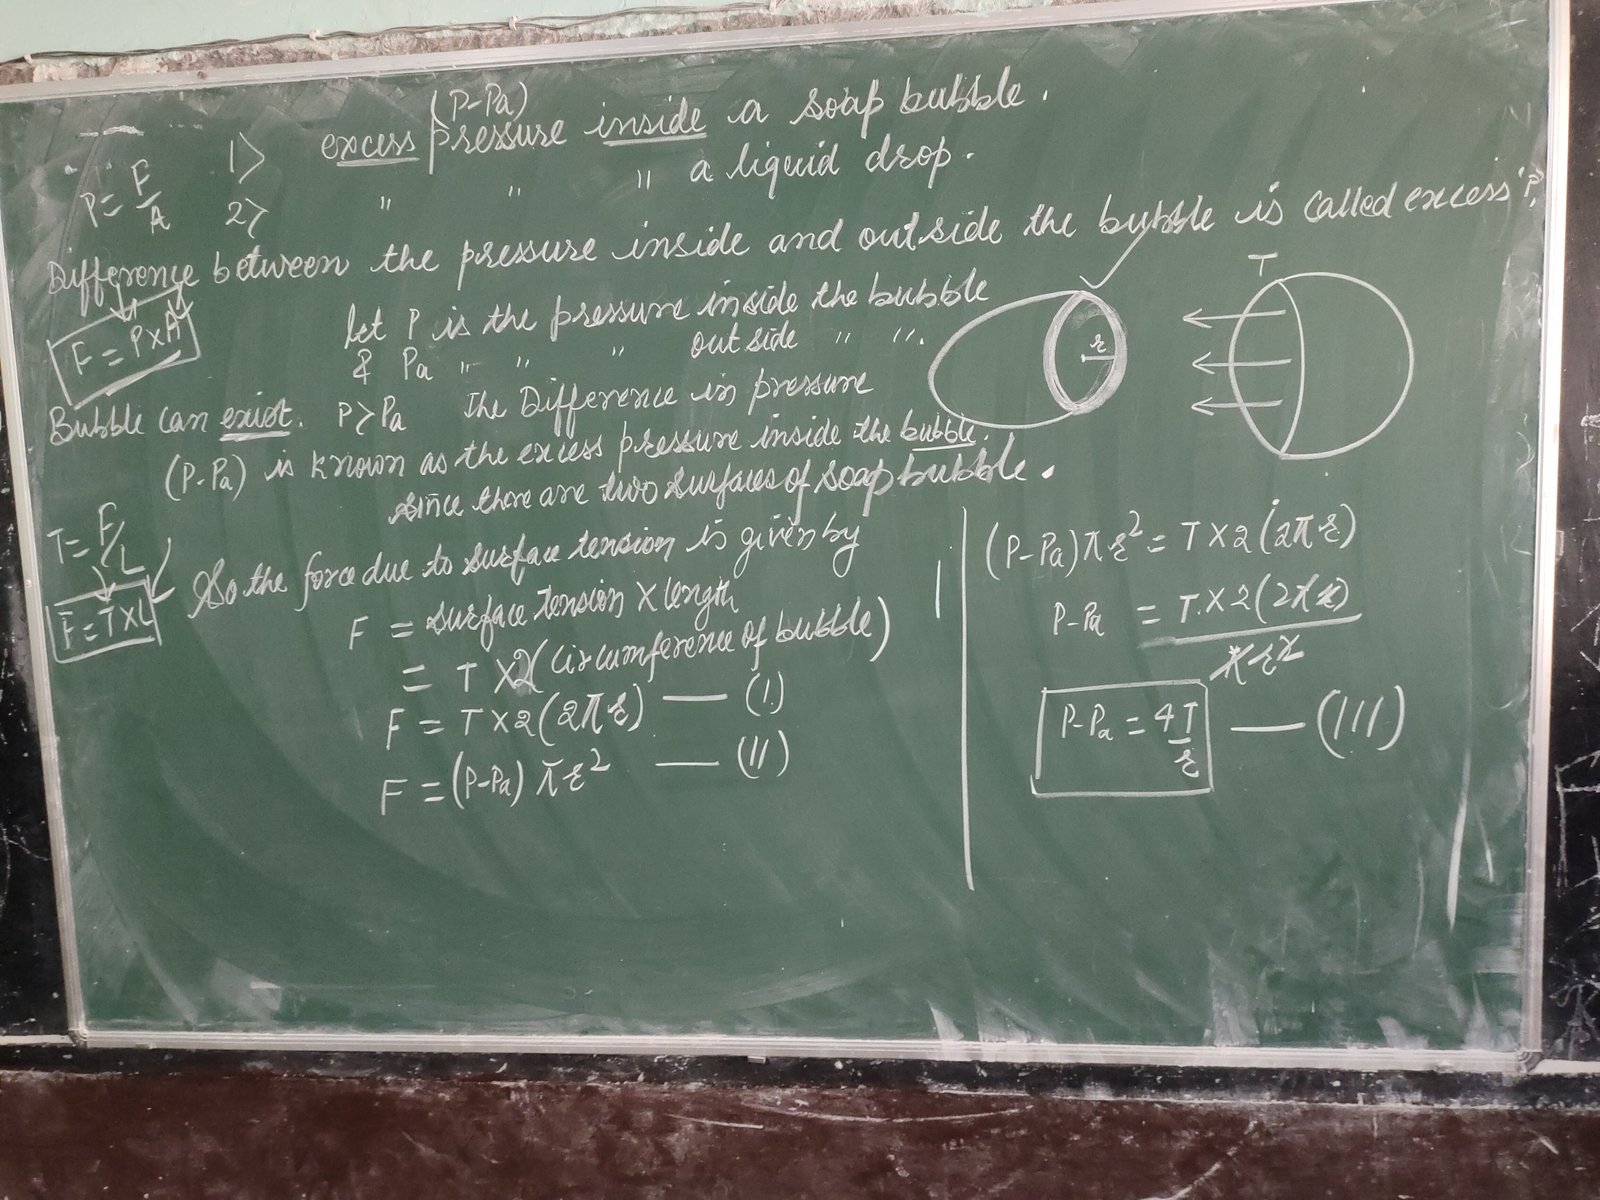 (P-Pa)
1> excess pressure inside a soap bubble.
P = F/A 2> " " " a liquid drop.
Difference between the pressure inside and outside the bubble is called excess 'P'.
F = P×A
let P is the pressure inside the bubble
& Pa " " outside " ".
Bubble can exist. P > Pa The Difference in pressure
(P-Pa) is known as the excess pressure inside the bubble.
since there are two surfaces of soap bubble.
T = F/L
So the force due to surface tension is given by
F = T×L
F = surface tension × length
= T × 2(circumference of bubble)
F = T × 2(2πr) — (I)
F = (P-Pa) πr² — (II)
r
T
(P-Pa)πr² = T×2(2πr)
P-Pa = T×2(2πr)/πr²
P-Pa = 4T/r — (III)